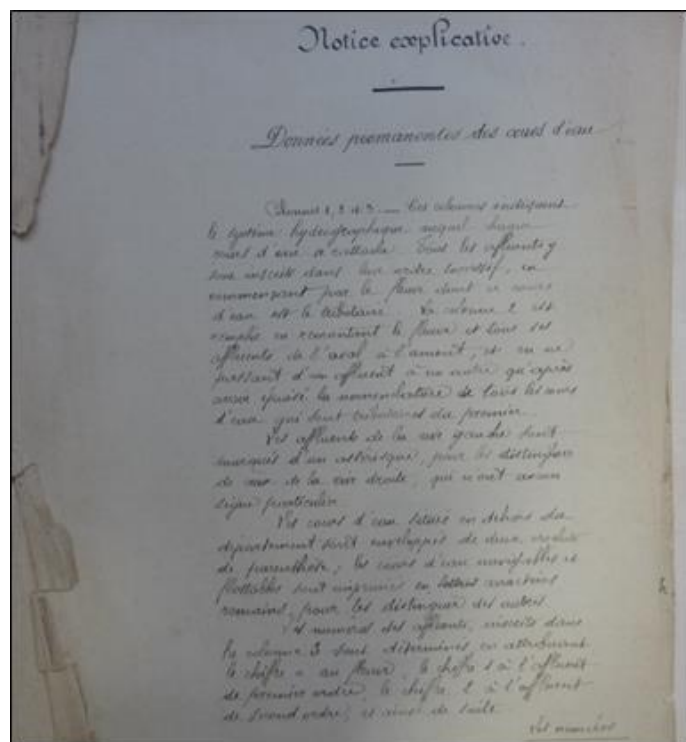 Notice explicative.
Données permanentes des cours d'eau
Colonnes 1, 2 et 3. — Ces colonnes indiquent
le système hydrographique auquel chaque
cours d'eau se rattache. Tous les affluents y
sont inscrits dans leur ordre successif, en
commençant par le fleuve dont ce cours
d'eau est le tributaire. La colonne 2 est
remplie en remontant le fleuve et tous ses
affluents de l'aval à l'amont, et en ne
passant d'un affluent à un autre qu'après
avoir épuisé la nomenclature de tous les cours
d'eau qui sont tributaires du premier.
Les affluents de la rive gauche sont
marqués d'un astérisque, pour les distinguer
de ceux de la rive droite, qui n'ont aucun
signe particulier.
Les cours d'eau situés en dehors du
département sont enveloppés de deux crochets
de parenthèse; les cours d'eau navigables et
flottables sont imprimés en lettres caractères
romains, pour les distinguer des autres.
Les numéros des affluents, inscrits dans
la colonne 3 sont déterminés en attribuant
le chiffre 0 au fleuve, le chiffre 1 à l'affluent
de premier ordre, le chiffre 2 à l'affluent
de second ordre, et ainsi de suite.
Les numéros